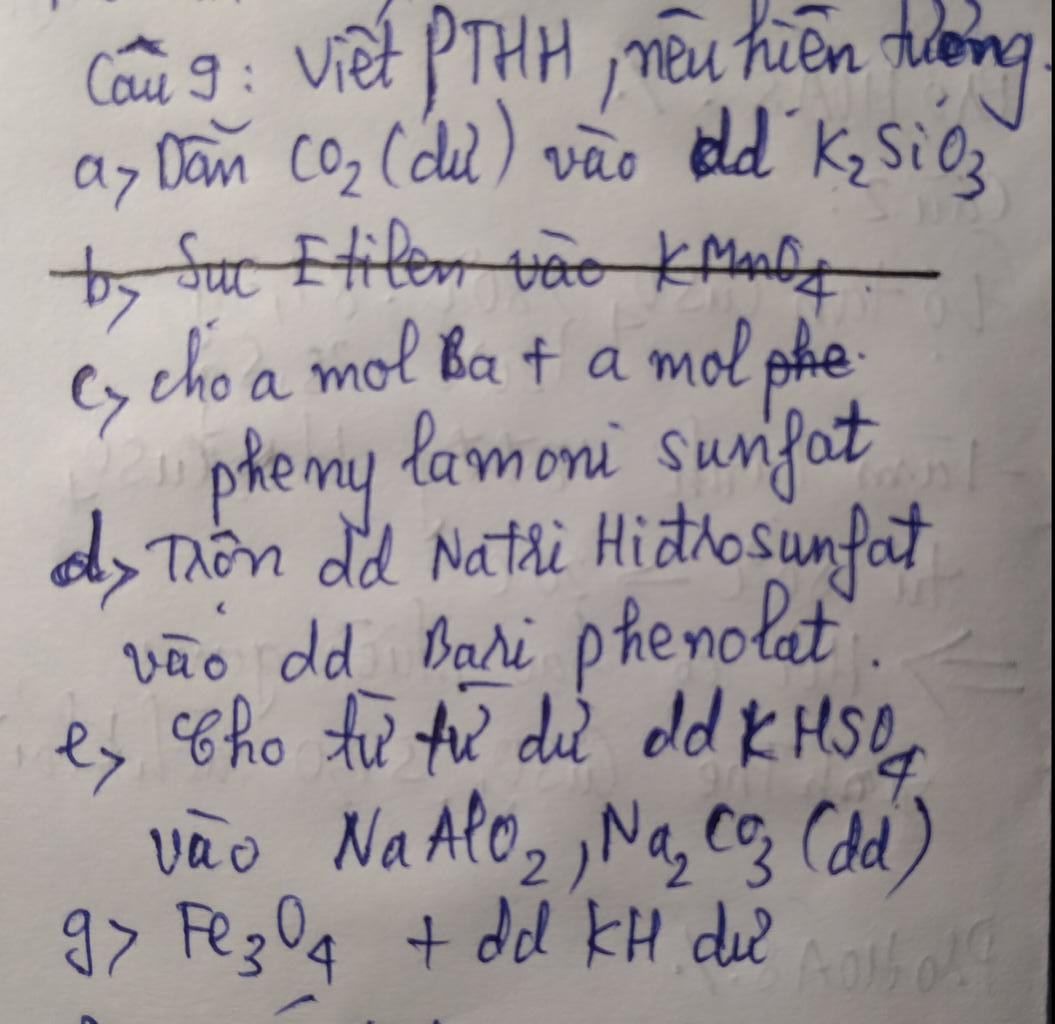 Câu 9: Viết PTHH, nêu hiện tượng.
a, Dẫn CO₂ (dư) vào dd K₂SiO₃
b, Sục Etilen vào KMnO₄.
c, cho a mol Ba + a mol phe
phenylamoni sunfat
d, Trộn dd Natri Hidrosunfat
vào dd Bari phenolat.
e, Cho từ từ dư dd KHSO₄
vào NaAlO₂, Na₂CO₃ (dd)
g> Fe₃O₄ + dd KH dư